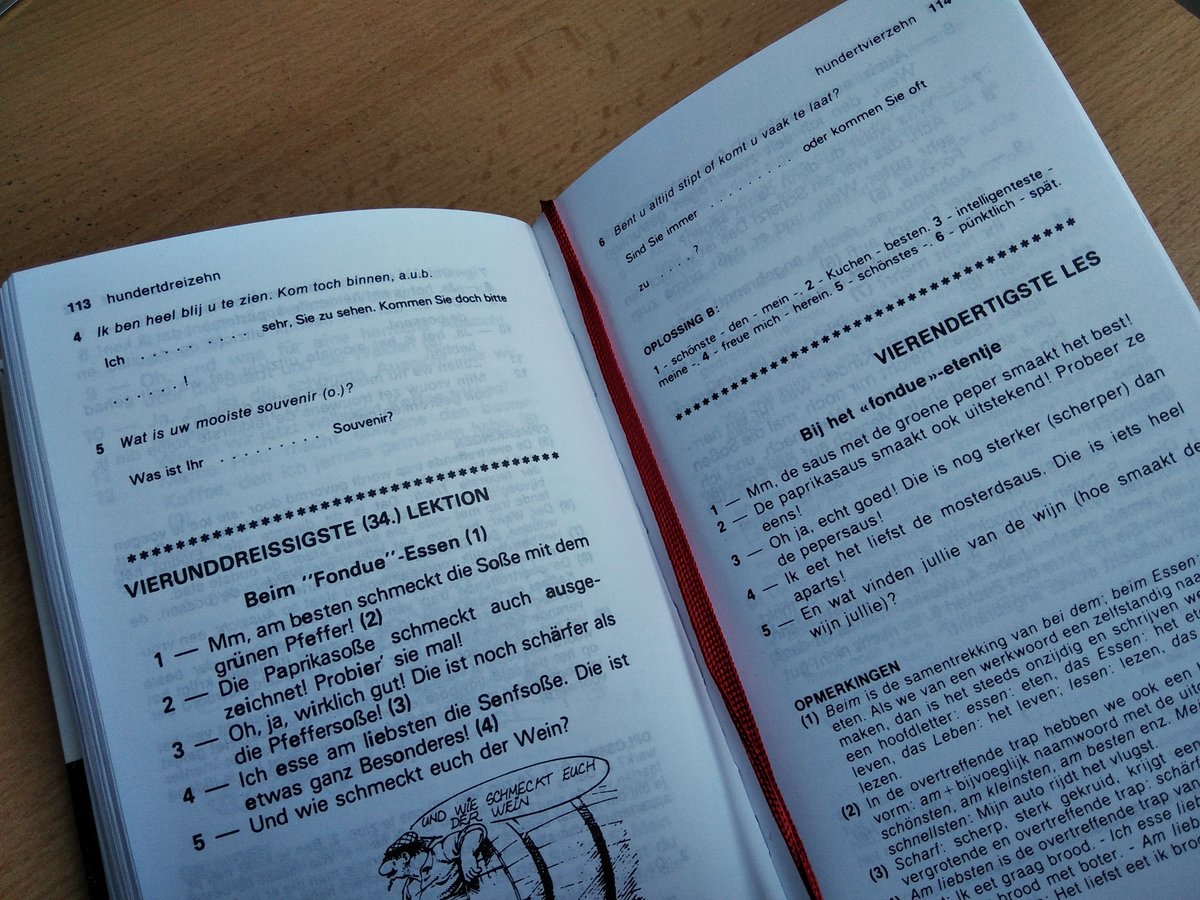 113 hundertdreizehn
4 Ik ben heel blij u te zien. Kom toch binnen, a.u.b.
Ich . . . . . . . . . . sehr, Sie zu sehen. Kommen Sie doch bitte
. . . . . !
5 Wat is uw mooiste souvenir (o.)?
Was ist Ihr . . . . . . . . Souvenir?
****************************************
VIERUNDDREISSIGSTE (34.) LEKTION
Beim "Fondue"-Essen (1)
1 — Mm, am besten schmeckt die Soße mit dem
grünen Pfeffer! (2)
2 — Die Paprikasoße schmeckt auch ausge-
zeichnet! Probier' sie mal!
3 — Oh, ja, wirklich gut! Die ist noch schärfer als
die Pfeffersoße! (3)
4 — Ich esse am liebsten die Senfsoße. Die ist
etwas ganz Besonderes! (4)
5 — Und wie schmeckt euch der Wein?
UND WIE SCHMECKT EUCH
DER WEIN
hundertvierzehn 114
6 Bent u altijd stipt of komt u vaak te laat?
Sind Sie immer . . . . . . . . . oder kommen Sie oft
zu . . . . ?
OPLOSSING B:
1 - schönste - den - mein -. 2 - Kuchen - besten. 3 - intelligenteste -
meine -. 4 - freue mich - herein. 5 - schönstes -. 6 - pünktlich - spät.
****************************************
VIERENDERTIGSTE LES
Bij het «fondue»-etentje
1 — Mm, de saus met de groene peper smaakt het best!
2 — De paprikasaus smaakt ook uitstekend! Probeer ze
eens!
3 — Oh ja, echt goed! Die is nog sterker (scherper) dan
de pepersaus!
4 — Ik eet het liefst de mosterdsaus. Die is iets heel
aparts!
5 — En wat vinden jullie van de wijn (hoe smaakt de
wijn jullie)?
OPMERKINGEN
(1) Beim is de samentrekking van bei dem; beim Essen
eten. Als we van een werkwoord een zelfstandig
maken, dan is het steeds onzijdig en schrijven we
een hoofdletter: essen: eten, das Essen: het
leven, das Leben: het leven; lesen: lezen, das
lezen.
(2) In de overtreffende trap hebben we ook een
vorm: am + bijvoeglijk naamwoord met de
schönsten, am kleinsten, am besten enz.
schnellsten: Mijn auto rijdt het vlugst.
(3) Scharf: scherp, sterk gekruid, krijgt een
vergrotende en overtreffende trap: schärfer
Am liebsten is de overtreffende trap van
Ik eet graag brood. - Ich esse
brood met boter. - Am
Het liefst eet ik